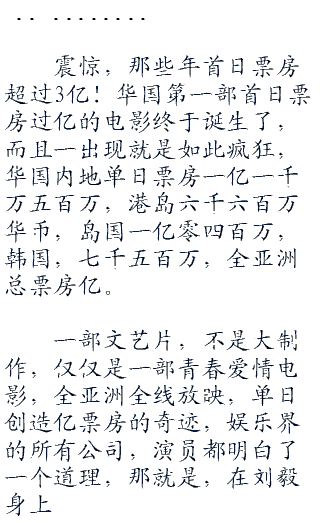 .. ........
震惊，那些年首日票房
超过3亿！华国第一部首日票
房过亿的电影终于诞生了，
而且一出现就是如此疯狂，
华国内地单日票房一亿一千
万五百万，港岛六千六百万
华币，岛国一亿零四百万，
韩国，七千五百万，全亚洲
总票房亿。
一部文艺片，不是大制
作，仅仅是一部青春爱情电
影，全亚洲全线放映，单日
创造亿票房的奇迹，娱乐界
的所有公司，演员都明白了
一个道理，那就是，在刘毅
身上